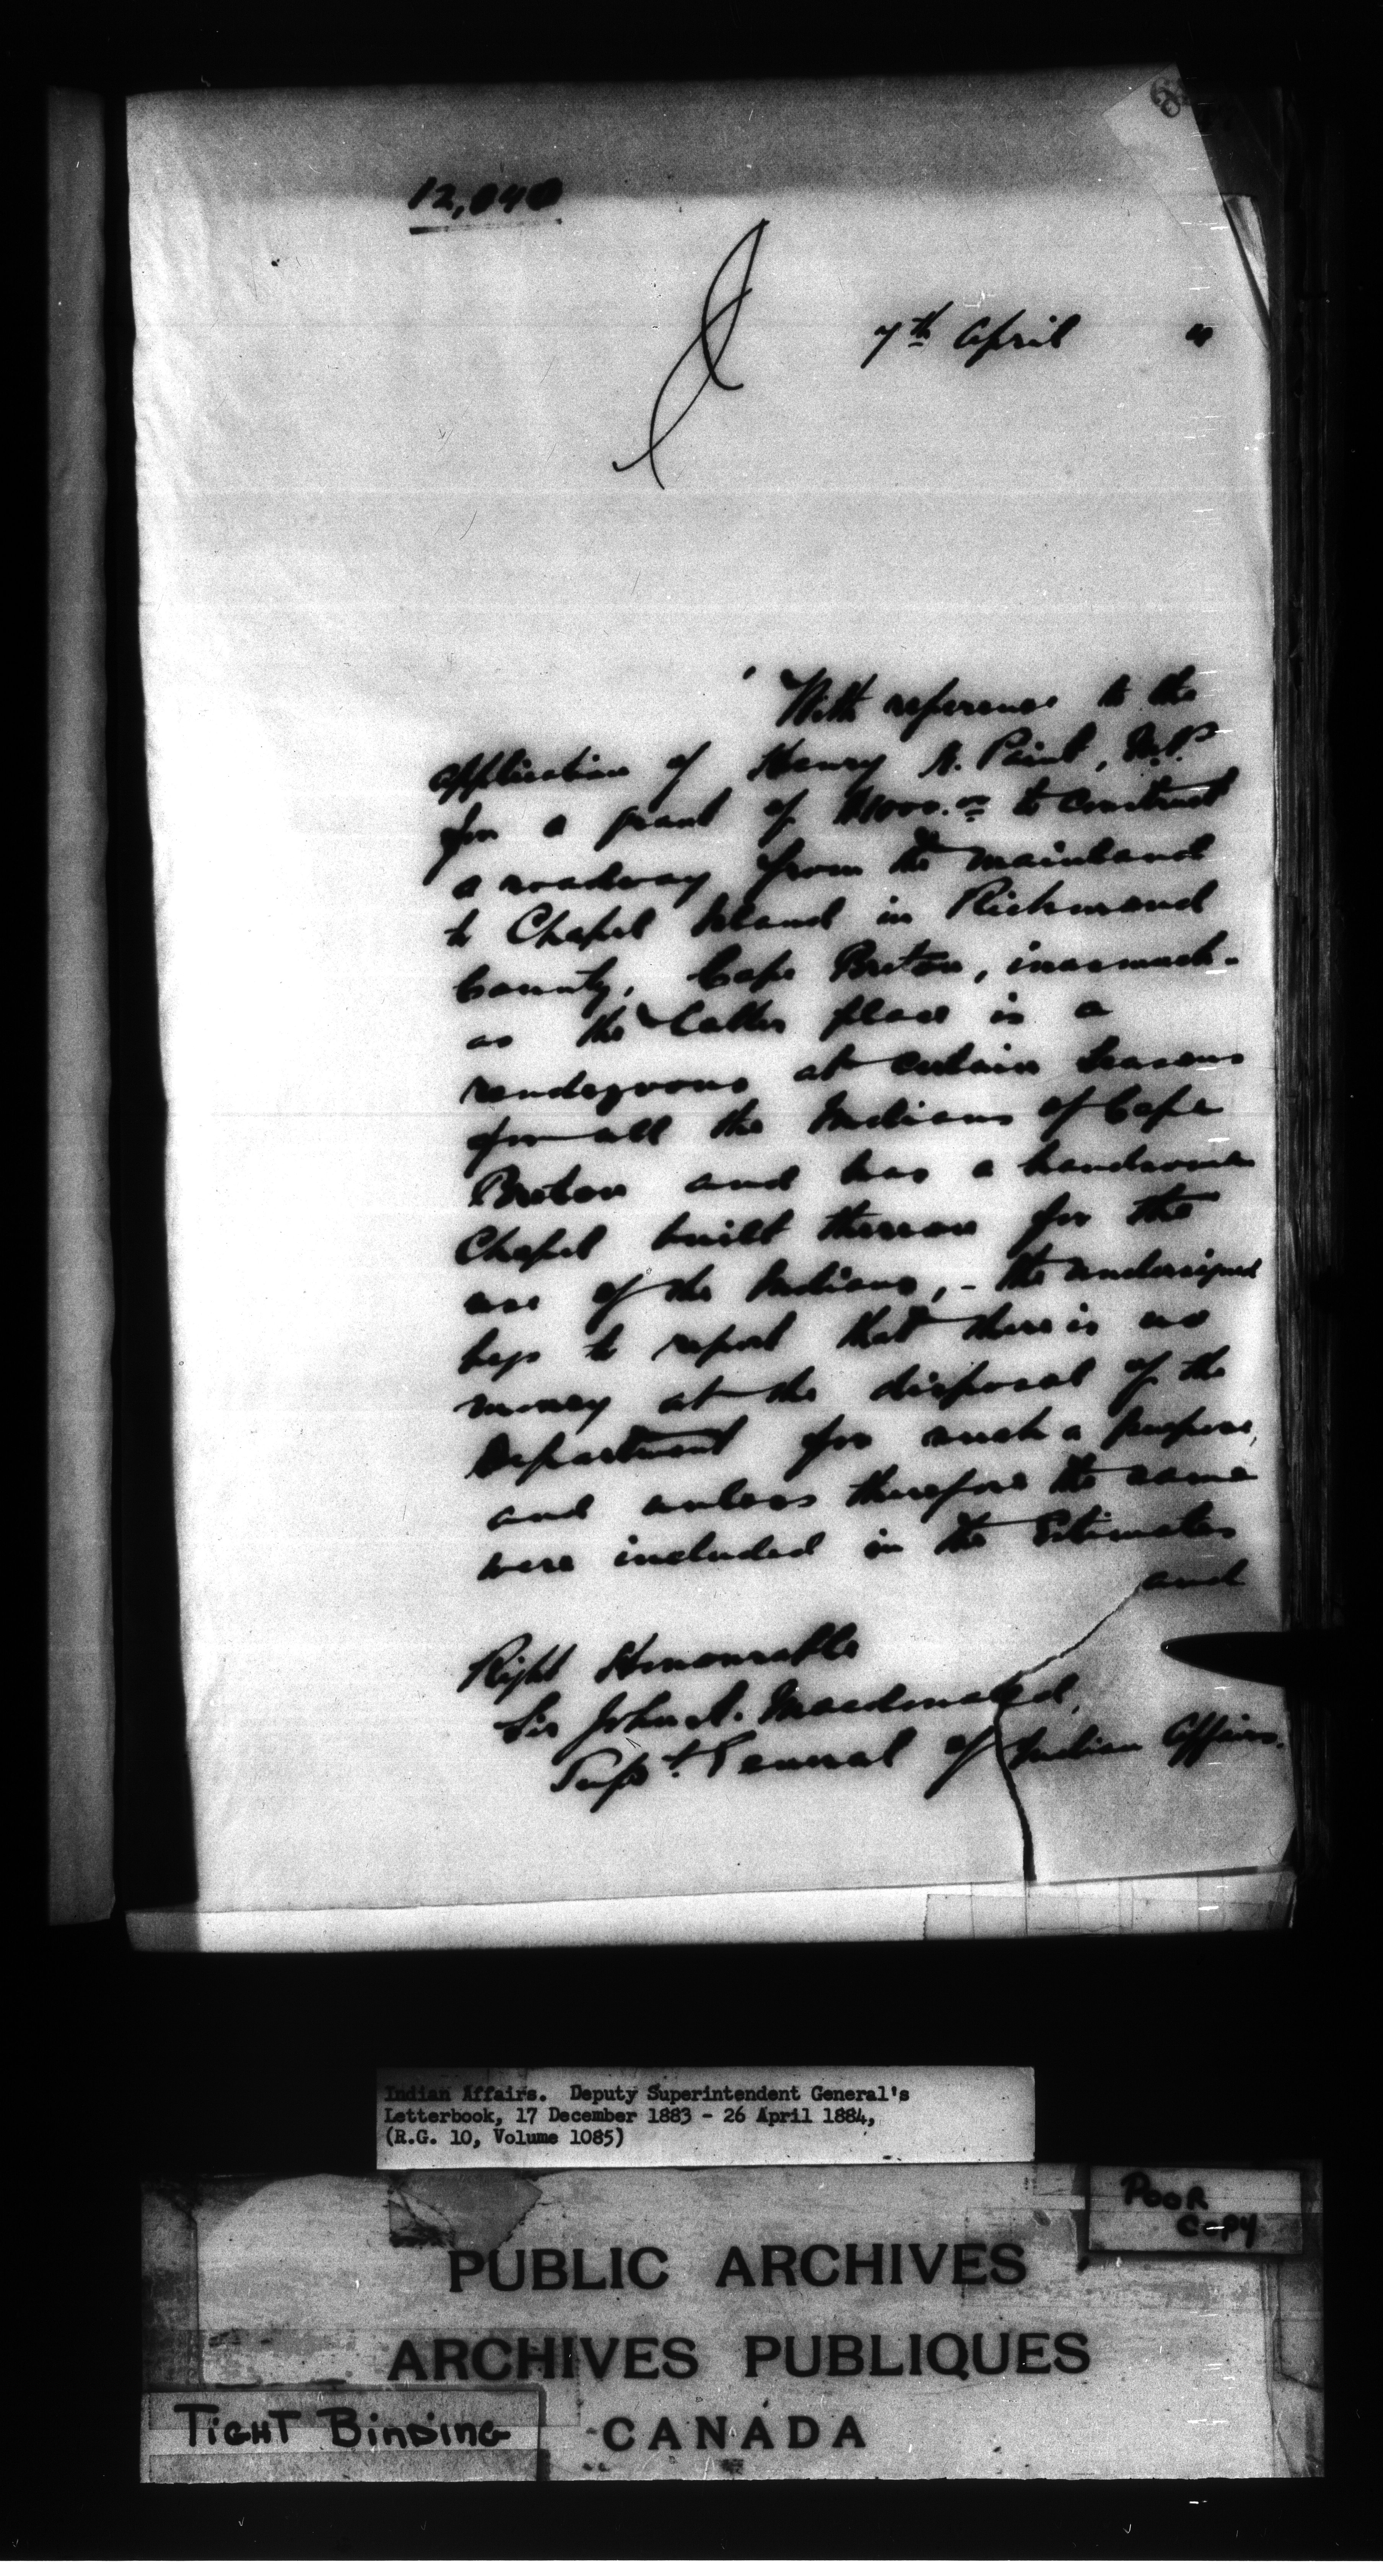 12,040
7th April "
With reference to the
application of Henry N. Paint, M.P.
for a grant of $1000.00 to construct
a roadway from the mainland
to Chapel Island in Richmond
County, Cape Breton, inasmuch-
as the latter place is a
rendezvous at certain seasons
for all the Indians of Cape
Breton and has a handsome
Chapel built thereon for the
use of the Indians, - the undersigned
begs to report that there is no
money at the disposal of the
Department for such a purpose,
and unless therefore the same
were included in the Estimates
and
Right Honourable
Sir John A. Macdonald,
Supt. General of Indian Affairs.
Indian Affairs. Deputy Superintendent General's
Letterbook, 17 December 1883 - 26 April 1884,
(R.G. 10, Volume 1085)
POOR
COPY
PUBLIC ARCHIVES
ARCHIVES PUBLIQUES
CANADA
TIGHT BINDING